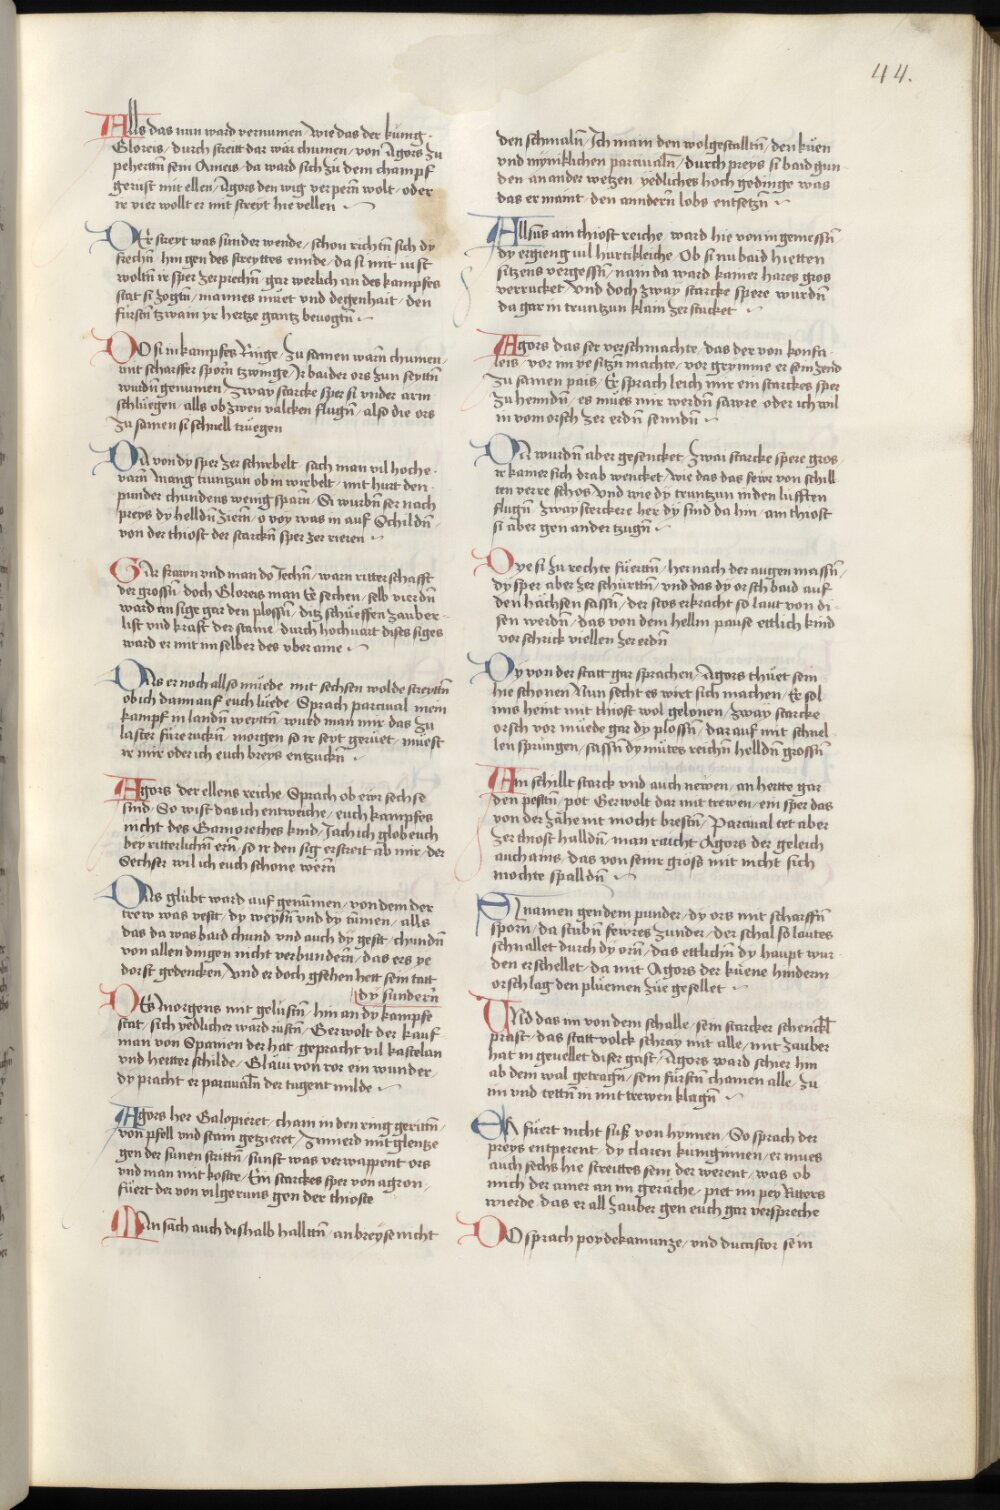 44.
Alls das nun ward vernumen / wie das der kunig
Gloreis / durch streitt dar wär chumen / von Agors zu
peherttn̄ sein Ameis / da ward sich zů dem champf
gerüst mit ellen / Agors den wig ver pern̄ wolt / oder
ir vier wollt er mit streyt hie vellen
Der streyt was sunder wende / schon richtn̄ sich dy
frechn̄ / hin gen des streyttes ennde / da si mit iust
woltn̄ ir sper zerprechn̄ / gar werlich an des kampfes
stat si zogtn̄ / mannes müet vnd degenhait / den
fürstn̄ tzwain yr hertze gantz bevogtn̄
Do si in kampfes Ringe / zu samen warn̄ chumen /
mit scharffer sporn̄ tzwinge / Ir baider ors zun seyttn̄
wurdn̄ genumen / zway starcke sper si vnder arm
schlüegen / alls ob zwen valcken flugn̄ / also die ors
zu samen si schnell trüegen
Da von dy sper zer schibelt / sach man vil hoche
varn̄ / Mang truntzun ob in wirbelt / mit hurt den
punder chundens wenig sparn̄ / Si wurbn̄ ser nach
preys dy helldn̄ ziern̄ / o voy was in auf Schildn̄
von der thiost der starckn̄ sper zer rieren
Gar frawn vnd man do Jechn̄ / warn ritterschafft
der grossn̄ / doch Gloreis man Er sechen / selb vierdn̄
ward an sige gar den plossn̄ / ditz schüeffen zauber
list vnd kraft der staine / durch hochuart dises siges
ward er mit im selber des vber aine
Das er noch allso müede mit sechsen wolde streyttn̄
ob ich dann auf euch lüede Sprach parcival / mein
kampf in landn̄ weyttn̄ / wurd man mir das zu
laster füre ruckn̄ / morgen so ir seyt gerüet / müest
ir mir oder ich euch breys entzuckn̄
Agors der ellens reiche Sprach ob ewr sechse
sind / So wist das ich entweiche / euch kampfes
nicht des Gamorethes kind / Jach ich glob euch
bey ritterlichn̄ ern̄ / so ir den sig erstreit ab mir / der
Sechser wil ich euch schone wern̄
Das glübt ward auf genumen / von dem der
trew was vestt / dy weysn̄ vnd dy tumen / alls
das da was baid chund vnd auch dy gest / chundn̄
von allen dingen nicht verbundern̄ / das ers ye
dorst gedencken / vnd er doch gsehen hett sein tatt
dy sundern̄
Des Morgens mit gelüstn̄ / hin an dy kampfe
stat / sich yedlicher ward rüstn̄ / Gerwolt der kauf
man von Spanien der hat gepracht vil kastelan
vnd hertter schilde / Gläui von ror ein wunder /
dy pracht er parcivaln̄ der tugent milde
Agors her Galopieret / cham in den ring gerittn̄ /
von pfell vnd stain getzieret / Zimierd mit glentze
gen der sunen strittn̄ / sunst was verwappent ors
vnd man mit koste / Ein starckes sper von agron /
füert der von vilgeruns gen der thioste
Man sach auch dishalb halltn̄ / an breyse nicht
den schmaln̄ / Ich main den wolgestalltn̄ / den küen
vnd myniklichen parciualn̄ / durch preys si baid gun
den an ander wetzen / yedliches hoch gedinge was
das er maint / den anndern̄ lobs entsetzn̄
Allsus am thiost reiche / ward hie von in gemessn̄
dy ergieng vil hurtikleiche / Ob si nu baid hietten
sitzens vergessn̄ / nain da ward kainer hares gros
verrucket / Vnd doch zway starcke spere wurdn̄
da gar in truntzun klain zer stucket
Agors das ser verschmachte / das der von konfa
leis / vor im ye sitzn̄ machte / vor grymme er sein zend
zu samen pais / Er sprach leich mir ein starckes sper
zu henndn̄ / es mues mir werdn̄ sawre / oder ich wil
in vom orsch zer erdn̄ senndn̄
Da wurdn̄ aber gesencket / zwai starcke spere gros /
ir kainer sich drab wencket / wie das das fewr von schill
ten verre schos / Vnd wie dy truntzun in den lufften
flugn̄ / zway sterckere her dy sind da hin / am thiost
si aber gen ander tzugn̄
Dye si zu rechte füerttn̄ / her nach der augen massn̄ /
dy sper aber zer schürttn̄ / vnd das dy orsch baid auf
den hächsen sassn̄ / der stos erkracht so laut von di
sen werdn̄ / das von dem hellm pause ettlich kind
vor schrick viellen zer erdn̄
Dy von der statt gar sprachen / Agors thüet sein
hie schonen / Nun secht es wirt sich machen / Er sol
uns heint mit thiost wol gelonen / zway starcke
orsch vor müede gar dy plossn̄ / dar auf mit schnel
len sprungen / sassn̄ dy mütes reichn̄ helldn̄ grossn̄
Ain schillt starck vnd auch newen / an hertte gar
den pesttn̄ / pot Gerwolt dar mit trewen / ein sper das
von der zähe nit mocht brestn̄ / Parcival tet aber
zer thiost halldn̄ / man raicht Agors der geleich
auch ains / das von seinr gross mit nicht sich
mochte spalldn̄
Si namen gen dem punder / dy ors mit scharffn̄
sporn̄ / da stubn̄ fewres zunder / der schal so lautes
schnallet durch dy orn̄ / das ettlichn̄ dy haupt wur
den erschellet / da mit Agors der küene hinderm
orsch lag den plüemen züe gesellet
Vnd das im von dem schalle / sein starcker schenckl
prast / das statt volck schray mit alle / mit zauber
hat in gevellet diser gast / Agors ward schier hin
ab dem wal getragn̄ / sein fürstn̄ chamen alle / zu
im vnd tettn̄ in mit trewen klagn̄
Er füert nicht suss von hynnen / So sprach der
preys entperent / dy claren kuniginnen / er mues
auch sechs hie streittes sein der werent / was ob
mich der amer an im geräche / piet im pey Ritters
wierde / das er all zauber gen euch gar verspreche
Do sprach poydekamunze / vnd ducastor sein